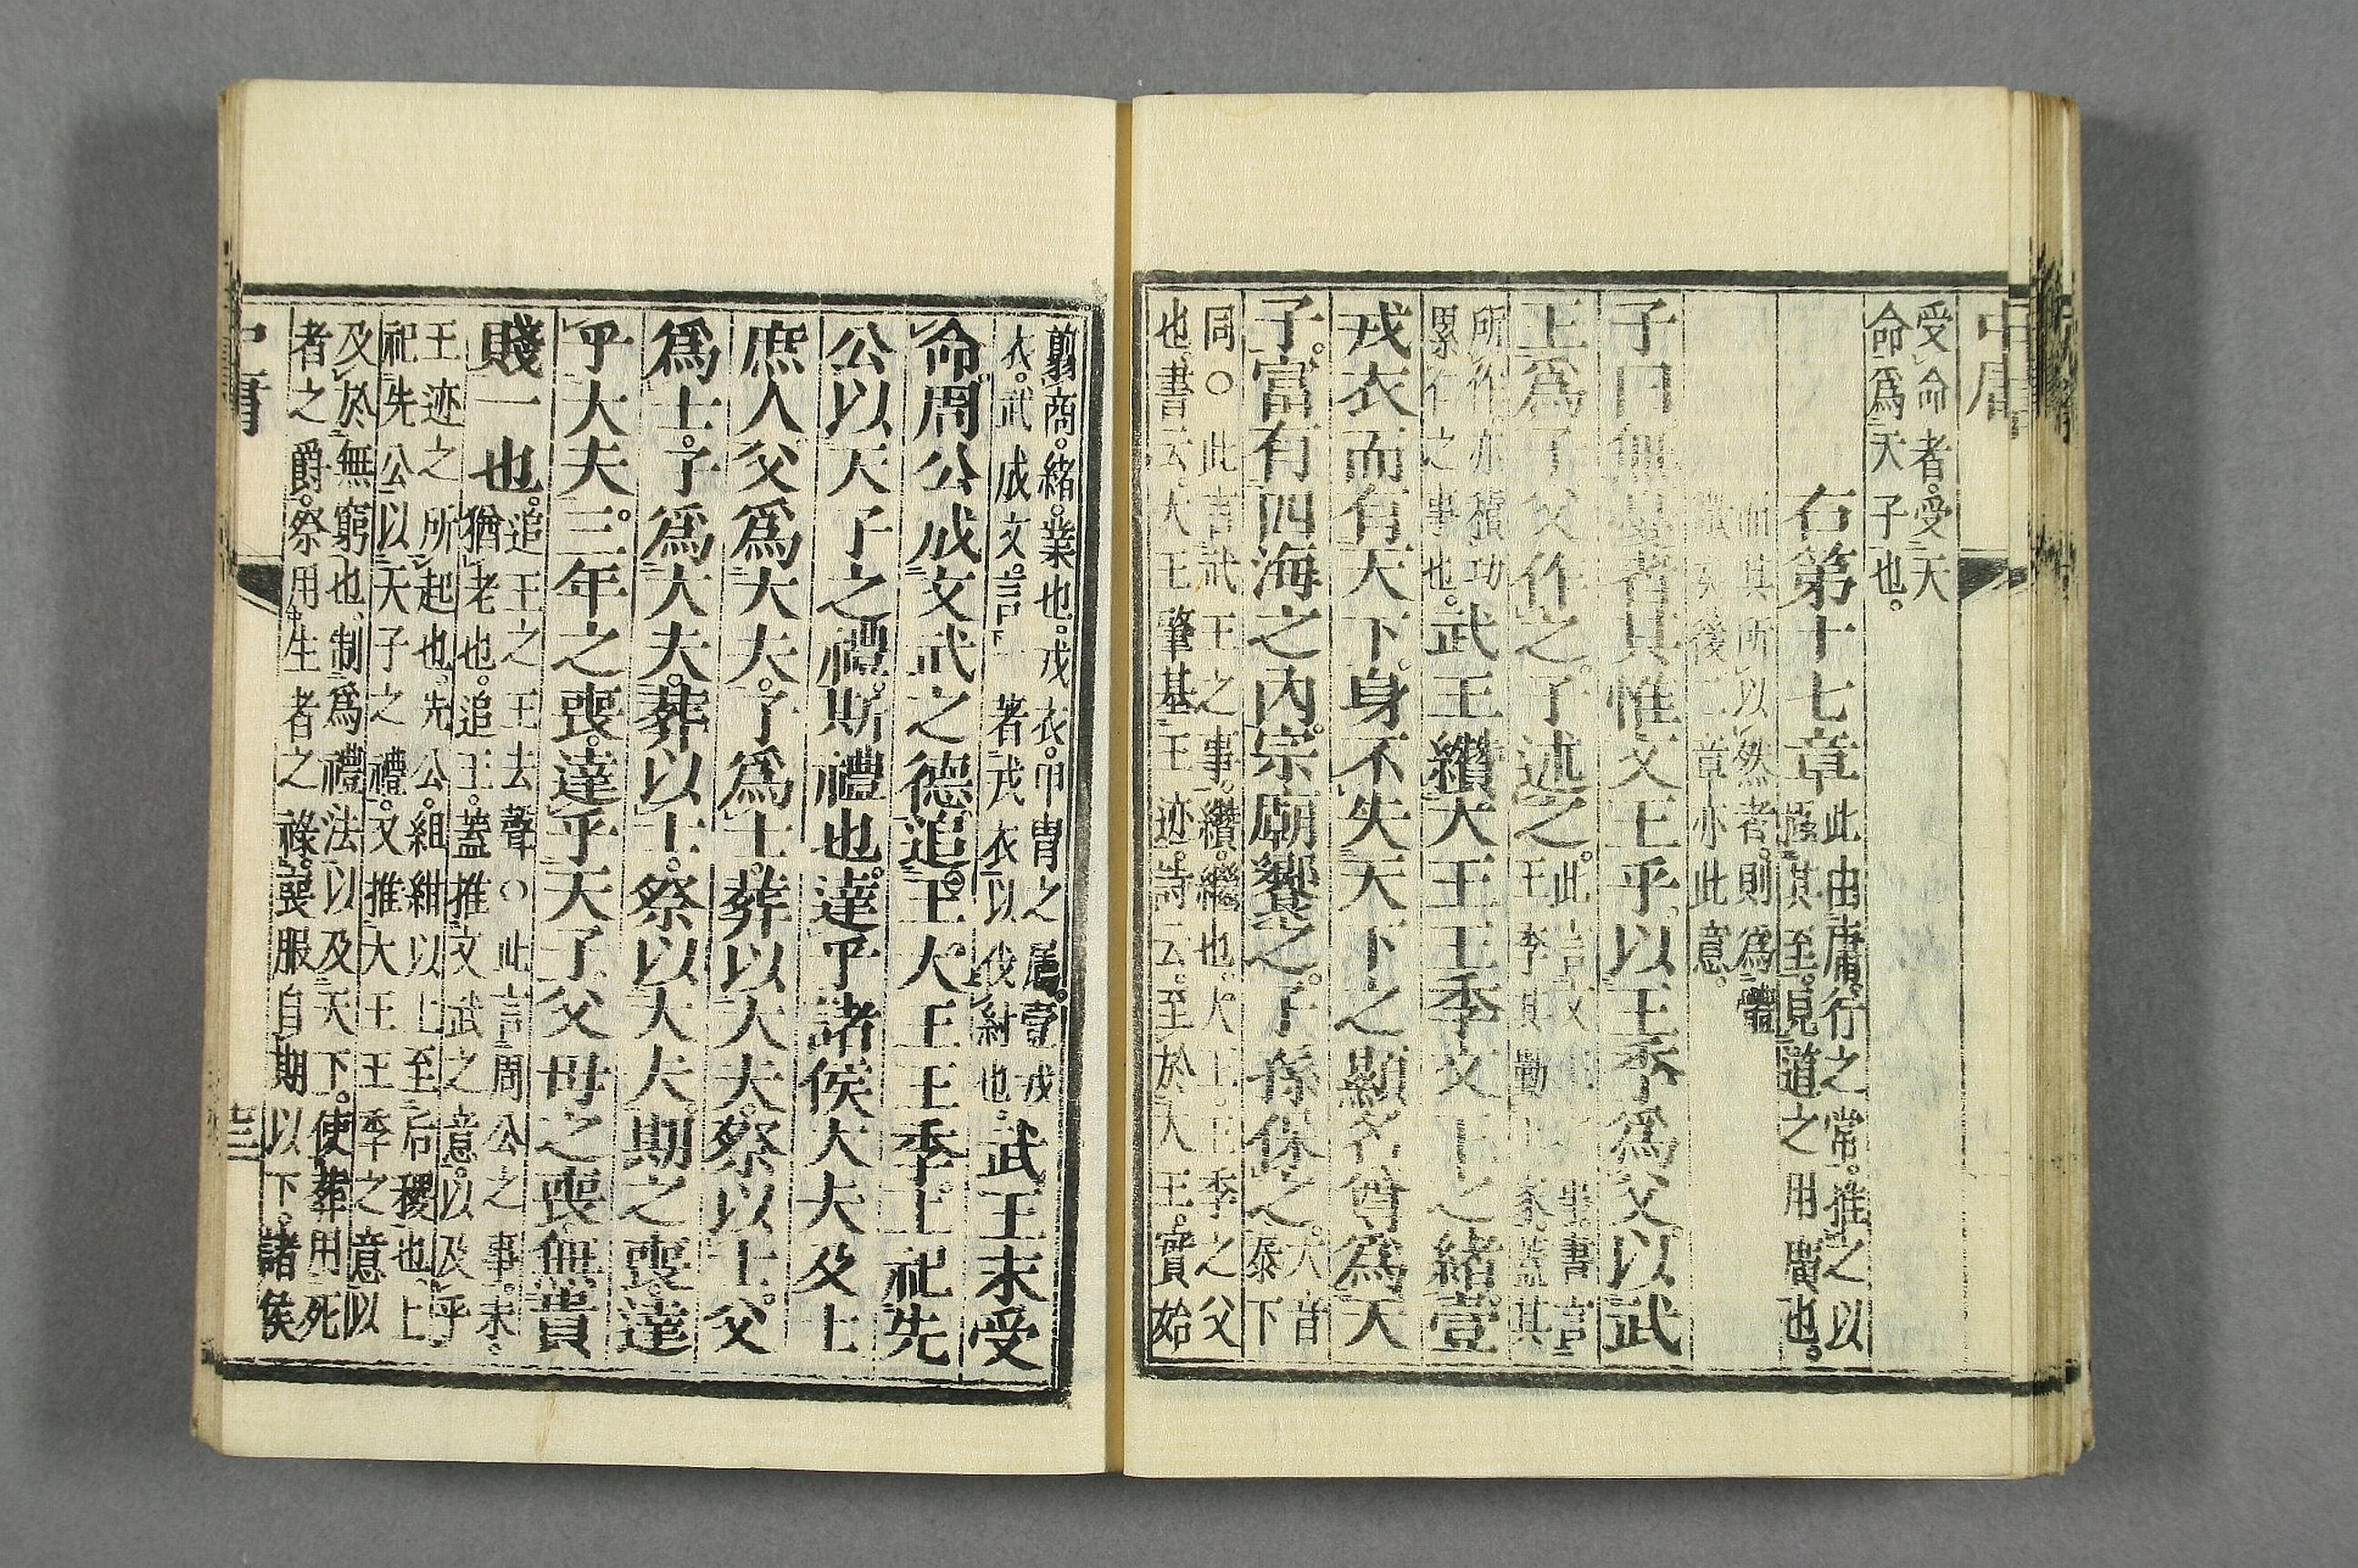 中庸
受命者。受天
命爲天子也。
右第十七章
此由庸行之常。推之以
極其至。見道之用廣也。
而其所以然者。則爲體
微矣後二章亦此意。
子曰無憂者其惟文王乎。以王季爲父。以武
王爲子父作之。子述之。
此言文事。書言
王季其勤王家。蓋其
所作亦積功
累仁之事也。
武王纘大王王季文王之緖。壹
戎衣而有天下。身不失天下之顯名。尊爲天
子。富有四海之內。宗廟饗之。子孫保之。
大音
泰下
同○此言武王之事。纘。繼也。大王王季之父
也。書云。大王肇基王迹。詩云。至於大王。實始
翦商。緖。業也。戎衣。甲冑之屬。壹戎
衣。武成文。言一著戎衣以伐紂也。
武王末受
命。周公成文武之德。追王大王王季。上祀先
公以天子之禮。斯禮也。達乎諸侯大夫及士
庶人父爲大夫。子爲士。葬以大夫。祭以士。父
爲士。子爲大夫。葬以士。祭以大夫。期之喪。達
乎大夫。三年之喪。達乎天子。父母之喪。無貴
賤一也。
追王之王去聲○此言周公之事。末。
猶老也。追王。蓋推文武之意。以及乎
王迹之所起也。先公。組紺以上至后稷也。上
祀先公以天子之禮。又推大王王季之意以
及於無窮也。制爲禮法以及天下。使葬用死
者之爵。祭用生者之祿。喪服自期以下。諸侯